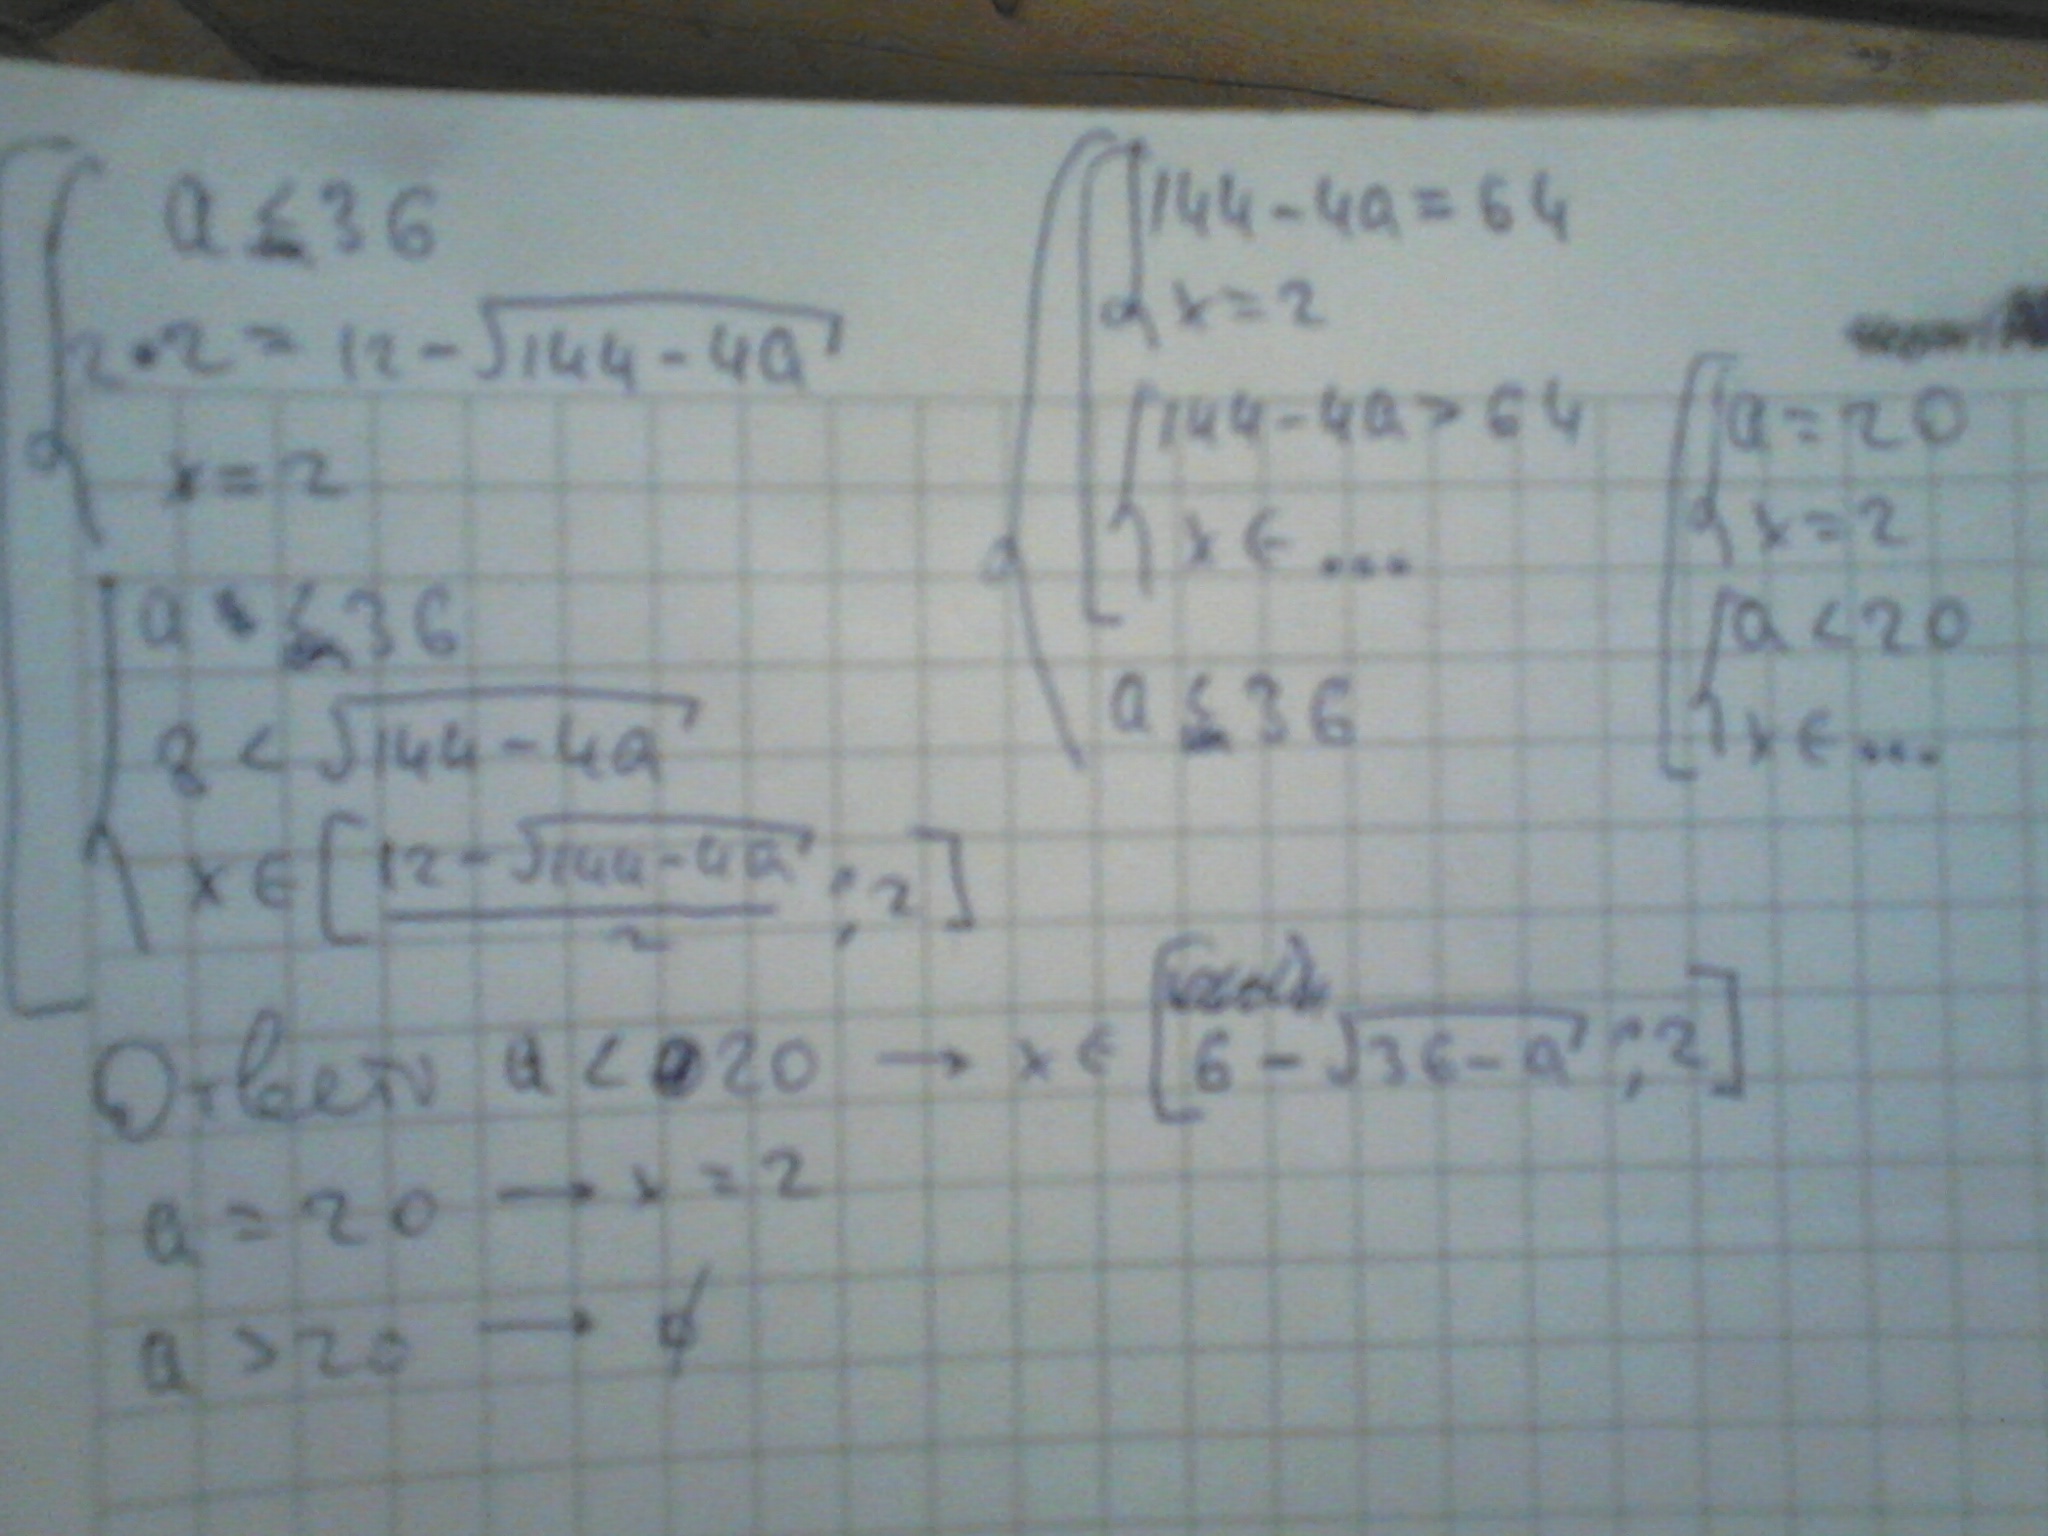 a ≤ 36
2·2 = 12 - √144 - 4a
x = 2
a ≤ 36
8 < √144 - 4a
x ∈ [12 - √144 - 4a / 2 ; 2]
144 - 4a = 64
x = 2
144 - 4a > 64
x ∈ ...
a ≤ 36
a = 20
x = 2
a < 20
x ∈ ...
Ответ a < 20 → x ∈ [6 - √36 - a ; 2]
a = 20 → x = 2
a > 20 → ∅